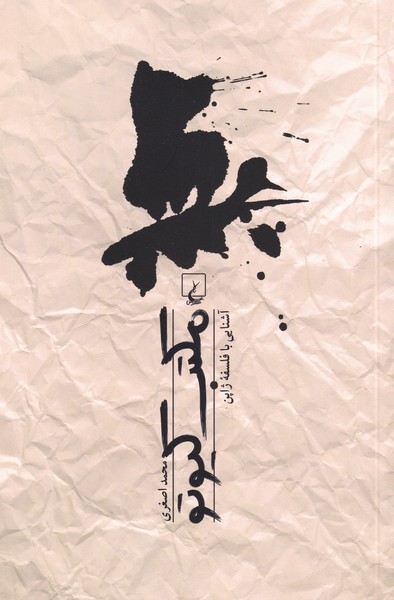 مکتب کیوتو
آشنایی با فلسفهٔ ژاپن
محمد اصغری